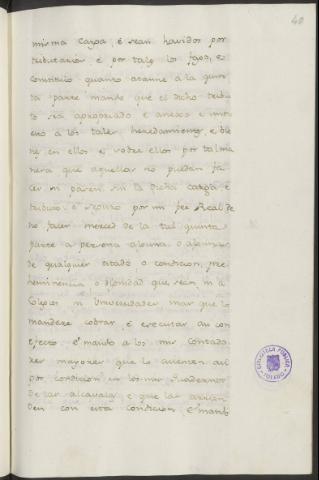 40
misma carga, é sean havidos por
tributarios é por tales los fago, é
constituio quanto atañe á la quin
ta parte mando que el dicho tribu
to sea apropiado é anexo é inhe
rido á los tales heredamientos, é bie
nes en ellos é sobre ellos por tal ma
nera que aquellos no puedan fa
cer ni pasen sin la dicha carga é
tributo. é seguro por mi fee Real de
no facer merced de la tal quinta
parte a persona alguna, o algunas
de qualquier estado, o condicion, pre
heminencia o dignidad que sean, ni a
Iglesias ni Universidades mas que lo
mandare cobrar, é executar au con
efecto. é mando a los mis contado
res mayores que lo asienten asi
por condicion en los mis Quadernos
de las alcavalas é que las arrien
den con esta condicion, é mando
BIBLIOTECA PUBLICA
TOLEDO